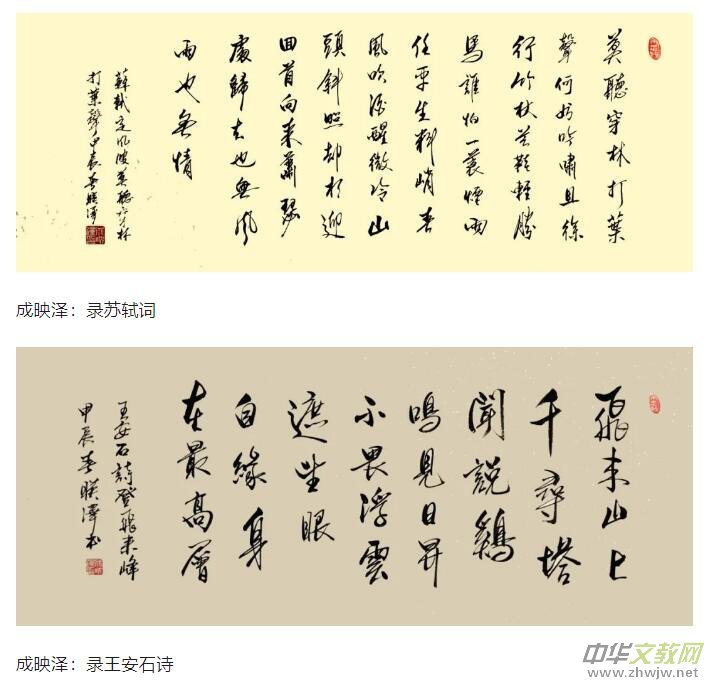 莫聽穿林打葉
聲何妨吟嘯且徐
行竹杖芒鞋輕勝
馬誰怕一蓑煙雨
任平生料峭春
風吹酒醒微冷山
頭斜照却相迎
回首向来蕭瑟
處歸去也無風
雨也無情
蘇軾定風波莫聽穿林
打葉聲甲辰春映澤
成映泽：录苏轼词
飛来山上
千尋塔
聞說鷄
鳴見日昇
不畏浮雲
遮望眼
自緣身
在最高層
王安石詩登飛来峰
甲辰春映澤書
成映泽：录王安石诗
中华文教网
www.zhwjw.net